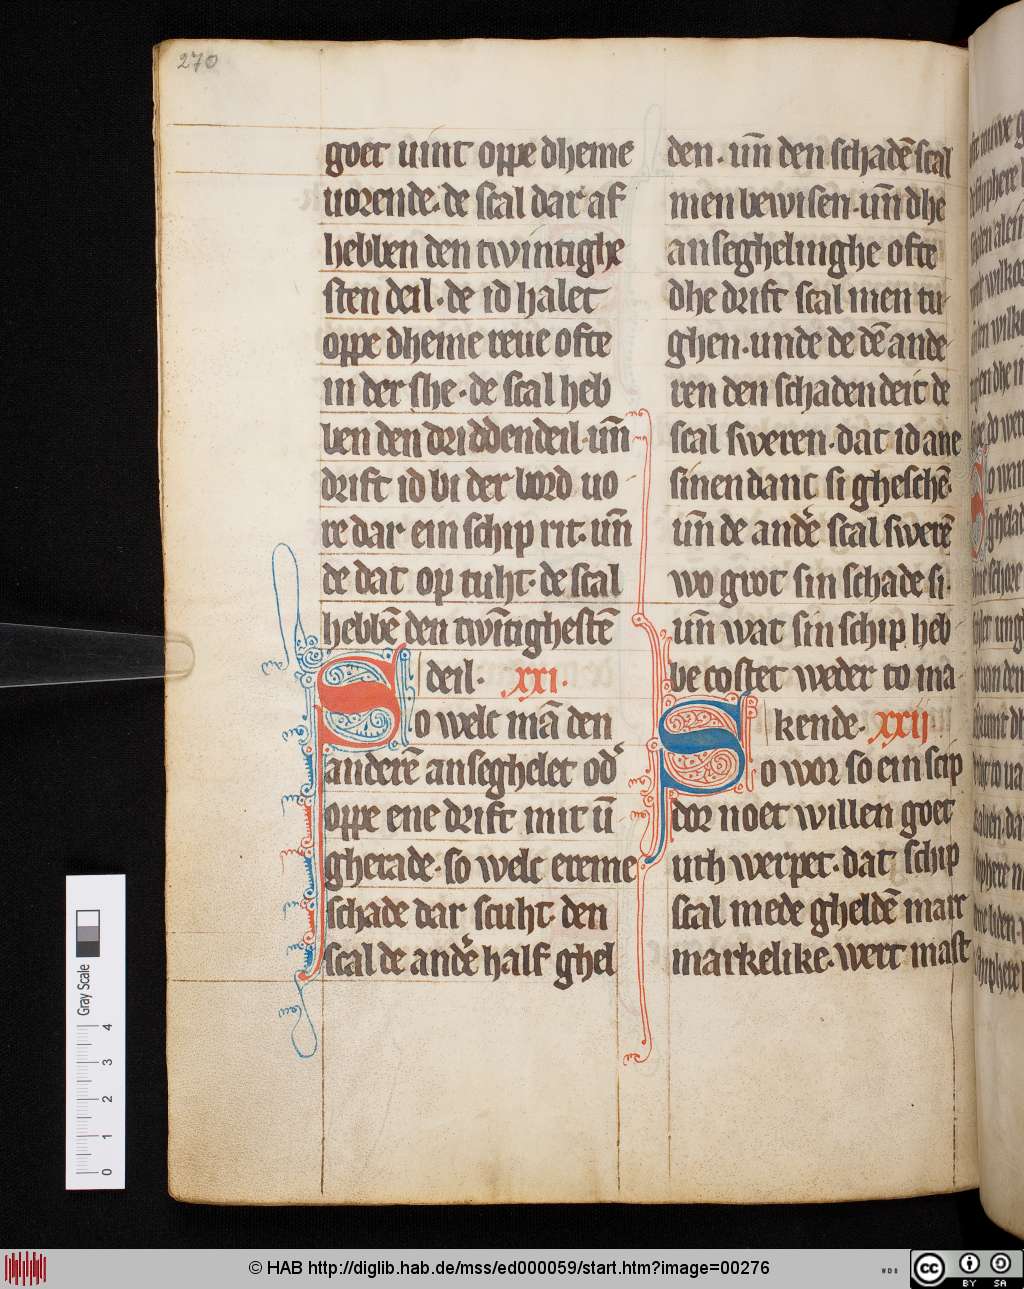 270
goet uint oppe dheme
uorende. de scal dar af
hebben den twintighe
sten deil. de id halet
oppe dheme reue ofte
in der she. de scal heb
ben den driddendeil. uñ
drift id bi der bord uo
re dar ein schip rit. uñ
de dat op tuht. de scal
hebbē den twītighestē
deil. xxi.
So welc mā den
anderē anseghelet od᷒
oppe ene drift mit ū
gherade. so welc ereme
schade dar scuht. den
scal de and᷒e half ghel
den. uñ den schadē scal
men bewisen. uñ dhe
anseghelinghe ofte
dhe drift scal men tu
ghen. unde de dē ande
ren den schaden deit de
scal sweren. dat id ane
sinen danc si gheschē.
uñ de and᷒e scal swerē
wo grot sin schade si.
uñ wat sin schip heb
be costet weder to ma
kende. xxij
So wor so ein scip
dor noet willen goet
uth werpet. dat schip
scal mede gheldē marc
markelike. wert mast
Gray Scale
0 1 2 3 4
© HAB http://diglib.hab.de/mss/ed000059/start.htm?image=00276
WDB
cc BY SA